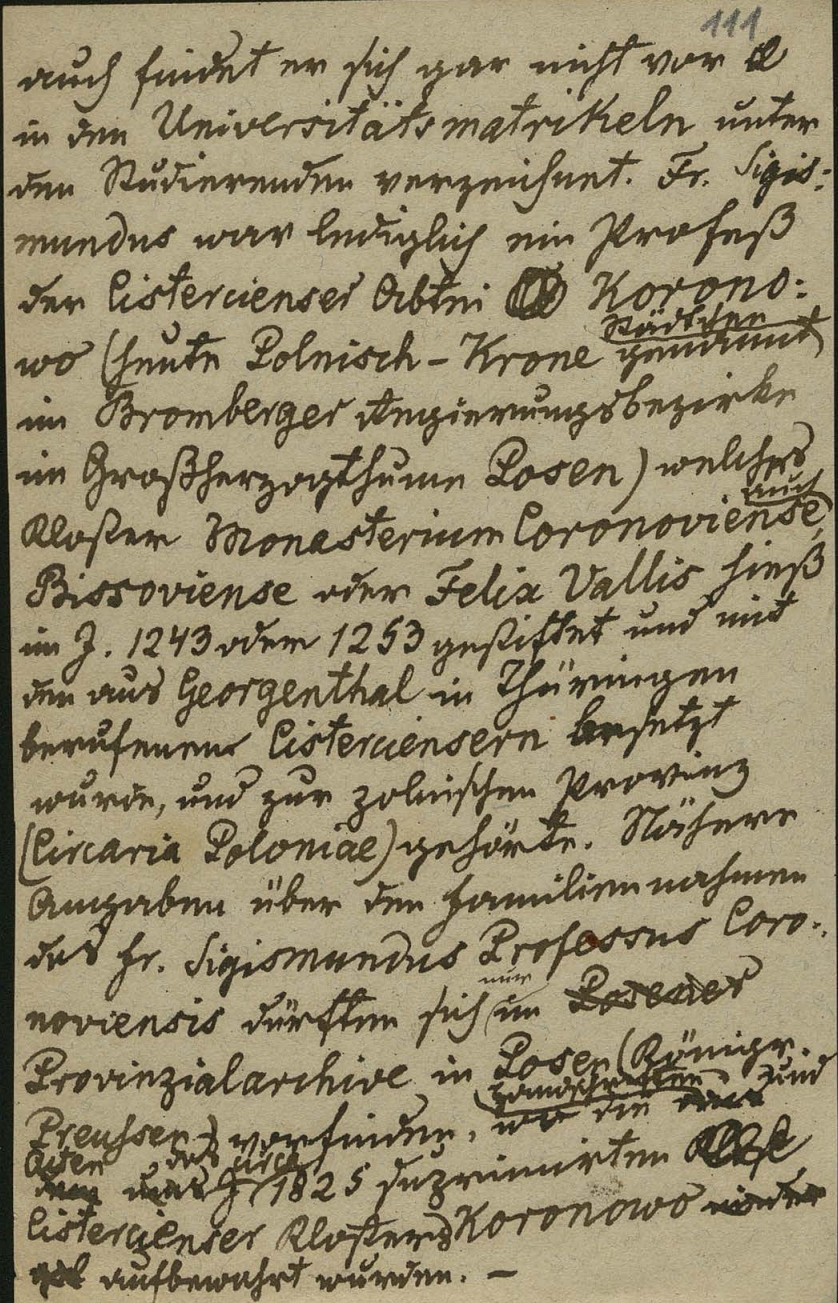 111
auch findet er sich gar nicht vor
in den Universitätsmatrikeln unter
den Studierenden verzeichnet. Fr. Sigis:
mundus war lediglich ein Profeß
der Cistercienser Abtei Korono:
wo (heute Polnisch-Krone Städtchen genannt
im Bromberger Regierungsbezirke
im Großherzogthume Posen) welches
Kloster Monasterium Coronoviense, auch
Bissoviense oder Felix Vallis hieß
im J. 1243 oder 1253 gestiftet und mit
den aus Georgenthal in Thüringen
berufenen Cisterciensern besetzt
wurde, und zur polnischen Provinz
(Circaria Poloniae) gehörte. Nähere
Angaben über den Familiennahmen
des Fr. Sigismundus Professus Coro:
noviensis dürften sich nur im Posener
Provinzialarchive in Posen (Königr.
Preussen) vorfinden, wo die Handschriften und
Acten des circa J 1825 supprimirten
Cistercienser Klosters Koronowo
aufbewahrt wurden. —